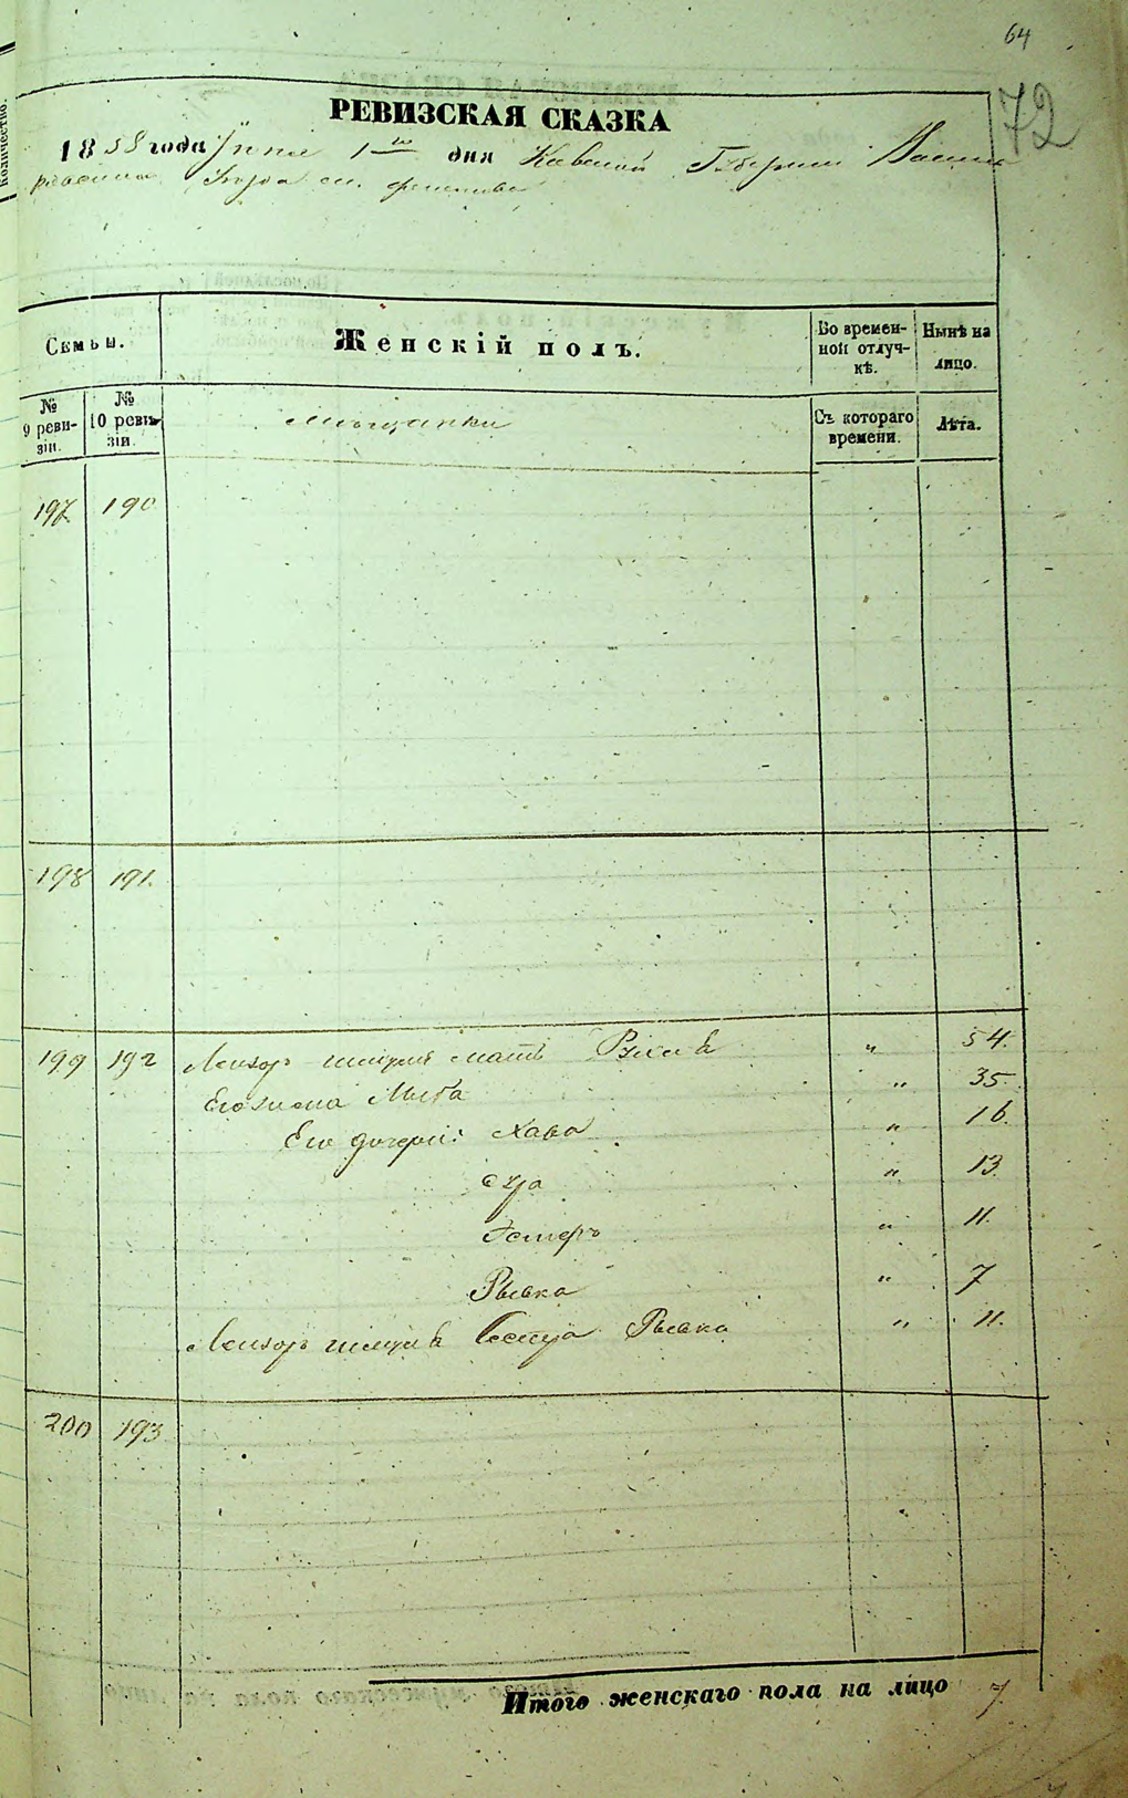 64
72
количество.
РЕВИЗСКАЯ СКАЗКА
1858 года Іюня 1го дня Кіевской Губерніи
Города
Семьи.
Женскій полъ.
Во времен-
ной отлуч-
кѣ.
Нынѣ на
лицо.
№
9 реви-
зіи.
№
10 реви-
зіи.
мѣщанки
Съ котораго
времени.
Лѣта.
197 190
198 191.
199 192 мать " 54.
Его жена " 35.
Его дочери: Хава " 16.
Сура " 13.
Эстеръ " 11.
Рывка " 7
сестра Рывка " 11.
200 193
Итого женскаго пола на лицо 7